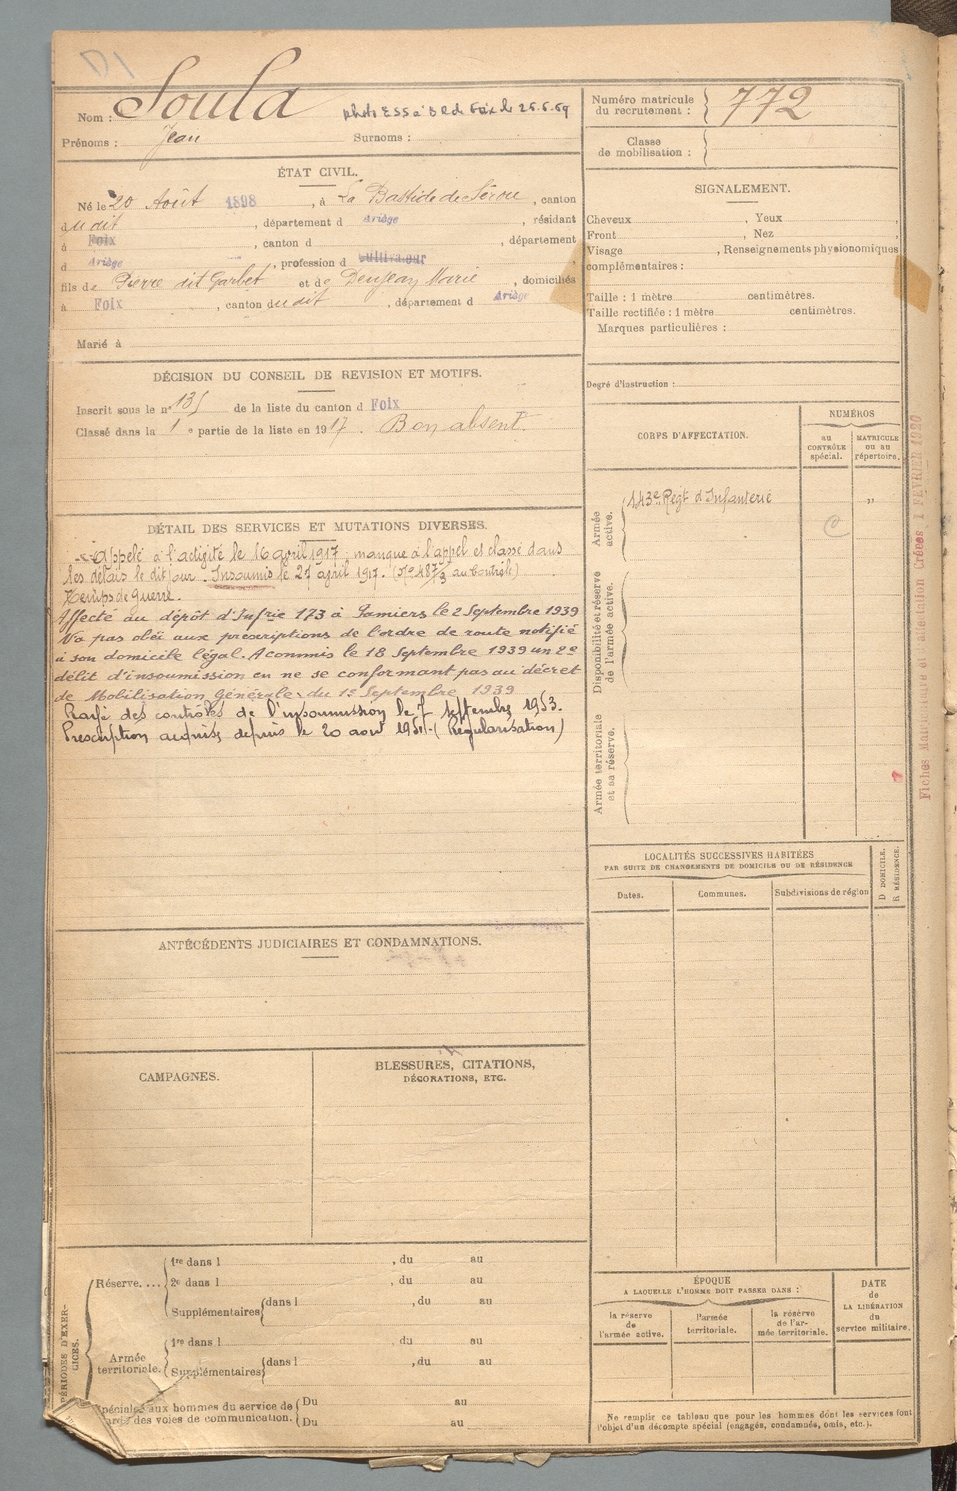 Nom : Soula
photo ESS à BRd Foix le 25.6.59
Prénoms : Jean Surnoms :
ÉTAT CIVIL.
Né le 20 Août 1898, à La Bastide de Sérou, canton
dudit, département d Ariège, résidant
à Foix, canton d , département
d Ariège, profession d cultivateur,
fils de Pierre dit Garbet et de Denjean Marie, domiciliés
à Foix, canton dudit, département d Ariège
Marié à
DÉCISION DU CONSEIL DE REVISION ET MOTIFS.
Inscrit sous le n° 135 de la liste du canton d Foix
Classé dans la 1e partie de la liste en 1917. Bon absent.
DÉTAIL DES SERVICES ET MUTATIONS DIVERSES.
Appelé à l'activité le 16 avril 1917 ; manque à l'appel et classé dans
les délais le dit jour. Insoumis le 27 avril 1917. (N° 487/3 au Contrôle)
Temps de Guerre.
Affecté au dépôt d'Infrie 173 à Pamiers le 2 Septembre 1939
N'a pas obéi aux prescriptions de l'ordre de route notifié
à son domicile légal. A commis le 18 Septembre 1939 un 2e
délit d'insoumission en ne se conformant pas au décret
de Mobilisation Générale du 1er Septembre 1939
Rayé des contrôles de l'insoumission le 7 septembre 1953.
Prescription acquise depuis le 20 aout 1951. (Régularisation)
ANTÉCÉDENTS JUDICIAIRES ET CONDAMNATIONS.
CAMPAGNES.
BLESSURES, CITATIONS,
DÉCORATIONS, ETC.
PÉRIODES D'EXER-
CICES.
Réserve....
1re dans l , du au
2e dans l , du au
Supplémentaires dans l , du au
Armée
territoriale.
1re dans l , du au
Supplémentaires dans l , du au
Spéciales aux hommes du service de
garde des voies de communication.
Du au
Du au
Numéro matricule
du recrutement : 772
Classe
de mobilisation :
SIGNALEMENT.
Cheveux , Yeux ,
Front , Nez ,
Visage , Renseignements physionomiques
complémentaires :
Taille : 1 mètre centimètres.
Taille rectifiée : 1 mètre centimètres.
Marques particulières :
Degré d'instruction :
CORPS D'AFFECTATION.
NUMÉROS
au
CONTRÔLE
spécial.
MATRICULE
ou au
répertoire.
Armée
active.
143e Regt d'Infanterie "
Disponibilité et réserve
de l'armée active.
Armée territoriale
et sa réserve.
LOCALITÉS SUCCESSIVES HABITÉES
PAR SUITE DE CHANGEMENTS DE DOMICILE OU DE RÉSIDENCE
Dates. Communes. Subdivisions de région
D DOMICILE.
R RÉSIDENCE.
ÉPOQUE
A LAQUELLE L'HOMME DOIT PASSER DANS :
la réserve
de
l'armée active.
l'armée
territoriale.
la réserve
de l'ar-
mée territoriale.
DATE
de
LA LIBÉRATION
du
service militaire.
Ne remplir ce tableau que pour les hommes dont les services font
l'objet d'un décompte spécial (engagés, condamnés, omis, etc.).